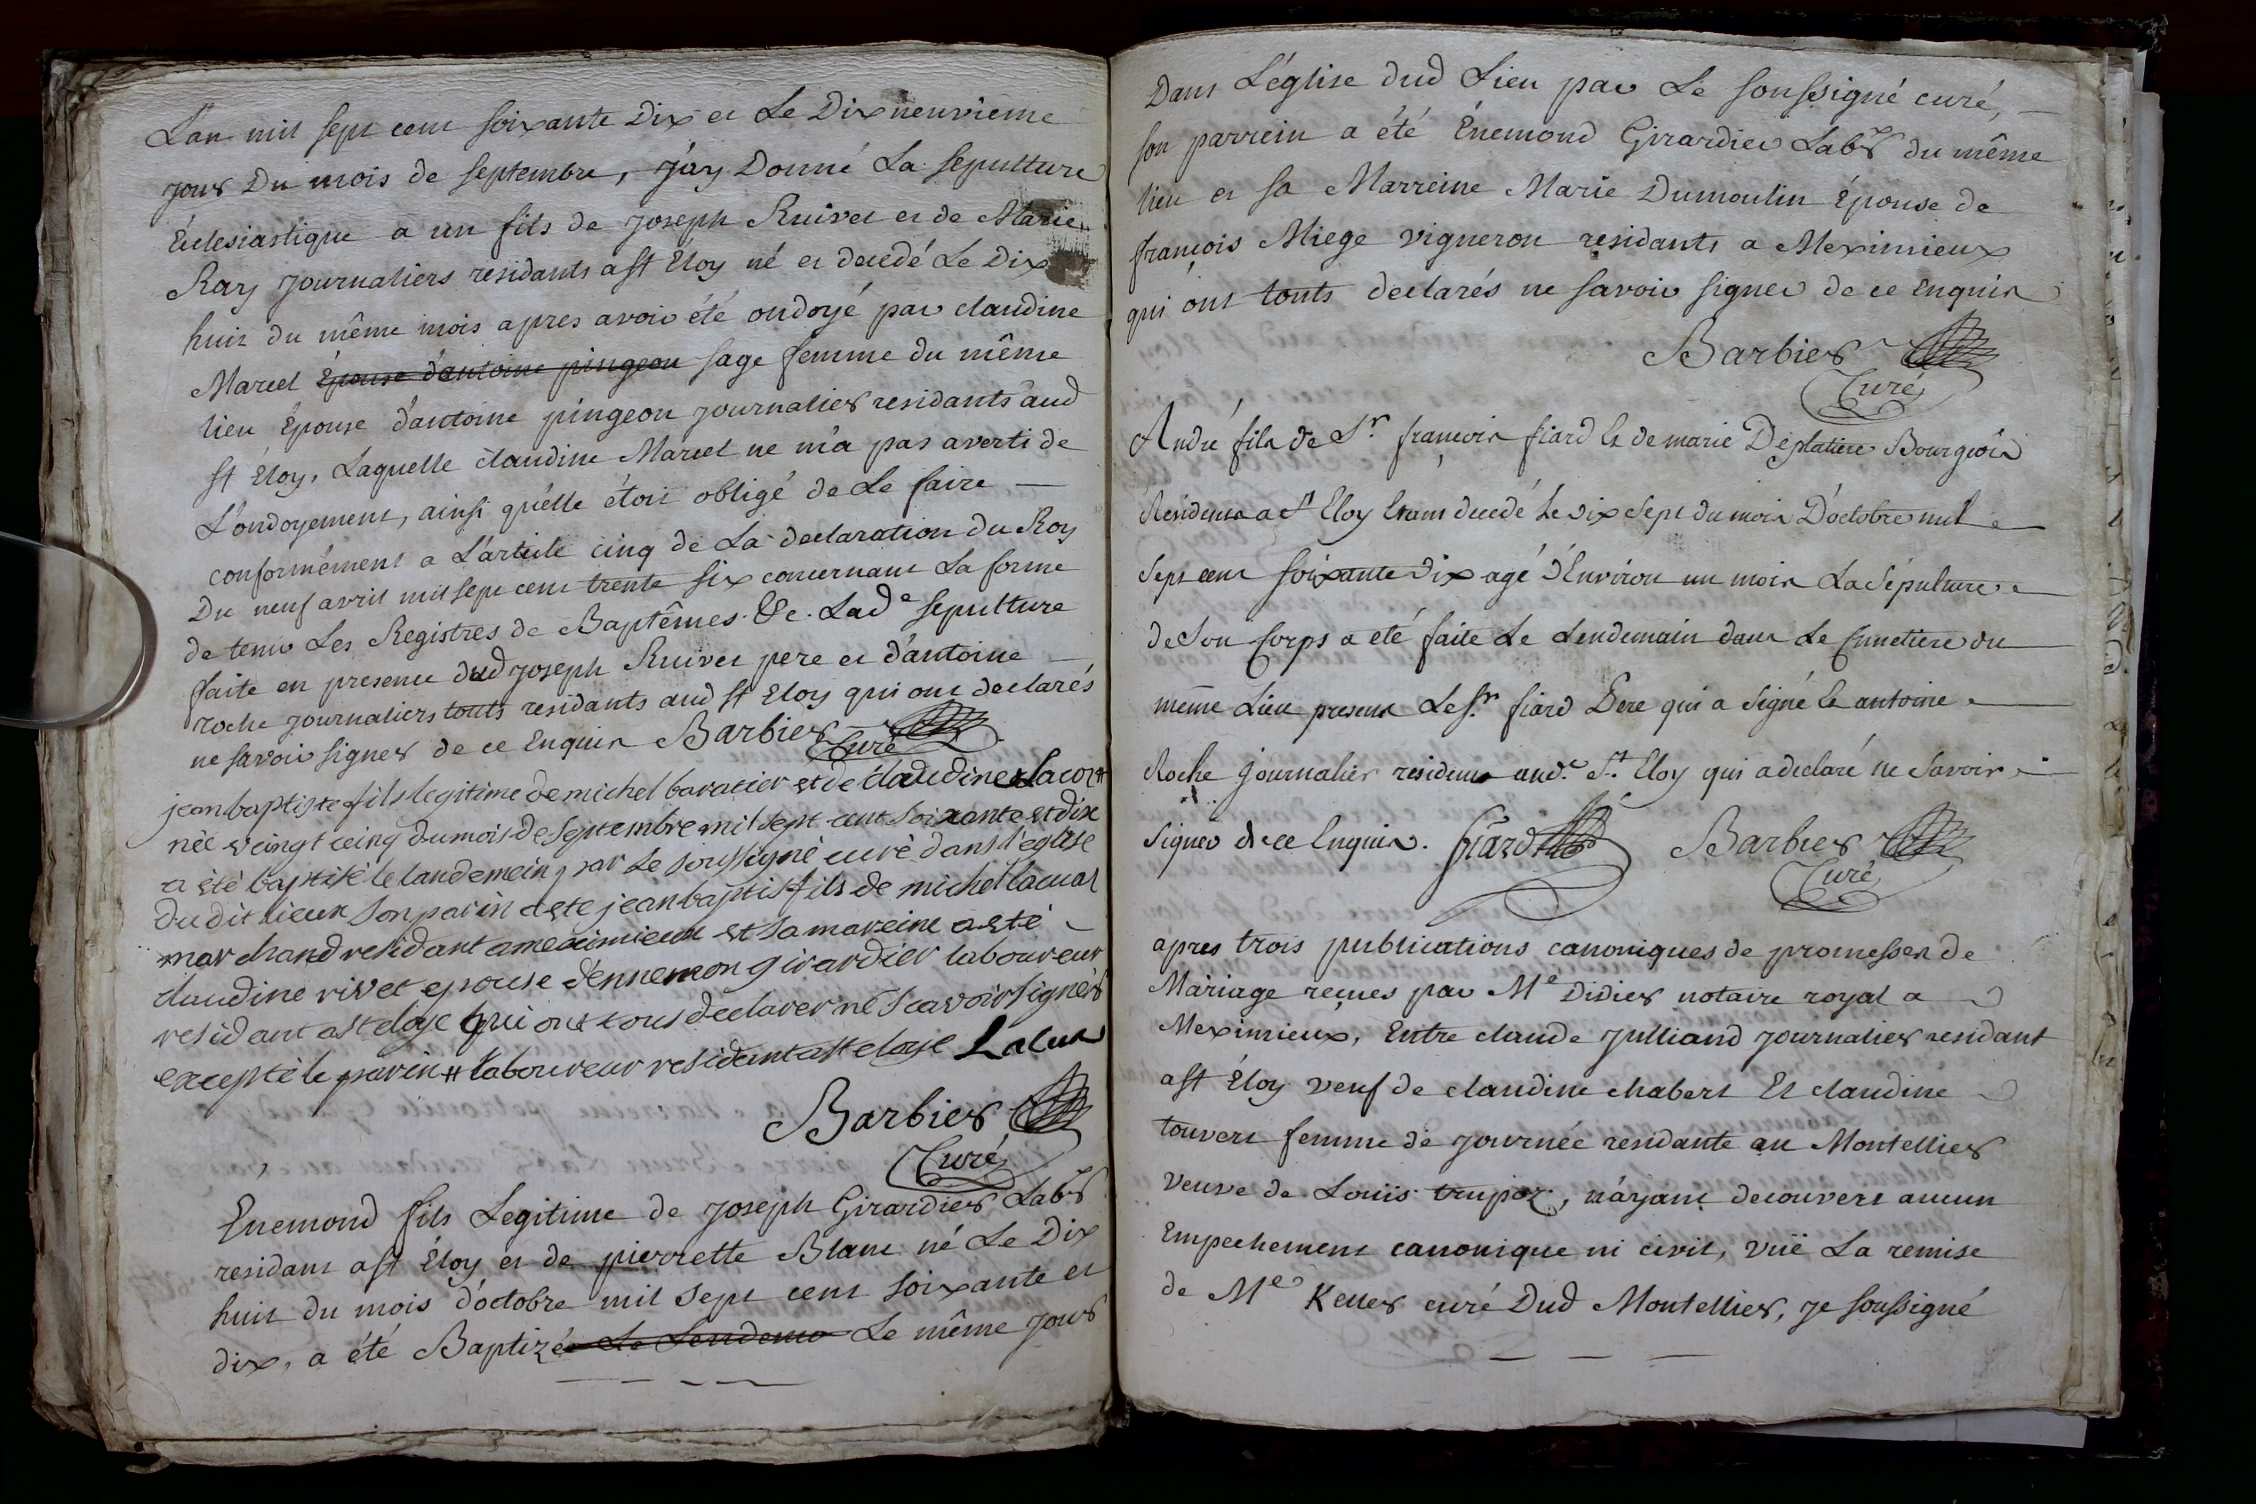 L'an mil sept cent soixante Dix et Le Dixneuvieme
jour Du mois de septembre, j'ay Donné La sepulture
Ecclesiastique a un fils de joseph Ruivet et de Marie
Ray journaliers residants a st Eloy né et decedé Le Dix
huit du même mois apres avoir été ondoyé par claudine
Marcel Epouse d'antoine pingeon sage femme du même
lieu Epouse d'antoine pingeon journalier residants aud
st Eloy, Laquelle claudine Marcel ne m'a pas averti de
L'ondoyement, ainsi qu'elle étoit obligé de Le faire
conformément a L'article cinq de La declaration du Roy
Du neuf avril mil sept cent trente six concernant La forme
de tenir Les Registres de Baptêmes &c. Lad.e sepulture
faite en presence dud joseph Ruivet pere et d'antoine
roche journaliers touts residants aud st Eloy qui ont declarés
ne savoir signer de ce Enquis Barbier
Curé
jean baptiste fils legitime de michel baratier et de claudine lacoz #
née veingt ceinq du mois de septembre mil sept cent soixante et dix
a été baptisé le landemein par Le soussigné curé dans l'eglise
du dit lieux son parin a ete jean baptist fils de michel lacuar
marchand residant a meximieux et sa mareine a eté
claudine rivet epouse d'ennemon girardier laboureur
residant a st eloye qui ont tous declarer ne scavoir signer
excepté le parin # laboureur residant a st eloye Lacua
Barbier
Curé
Enemond fils Legitime de joseph Girardier Labr
residant a st Eloy et de pierrette Blanc né Le Dix
huit du mois d'octobre mil sept cent soixante et
dix, a été Baptizé Le Lendem Le même jour
Dans L'église dud Lieu par Le soussigné curé,
son parrein a été Enemond Girardier Labr du même
lieu et sa Marreine Marie Dumoulin Épouse de
françois Miege vigneron residants a Meximieux
qui ont touts declarés ne savoir signer de ce Enquis
Barbier
Curé
André fils de Sr françois fiard Et de marie Deplatiere Bourgeois
Résidents a st Eloy Etant decedé Le dix sept du mois D'octobre mil
sept cent soixante dix agé d'Environ un mois La Sépulture
de Son Corps a eté faite Le Lendemain dans Le Cimetiere du
même Lieu present Le Sr fiard Pere qui a Signé Et antoine
Roche journalier residens aud.t St. Eloy qui a declaré ne Savoir
signer de ce Enquis. fiard Barbier
Curé
apres trois publications canoniques de promesses de
Mariage reçues par Me Didier notaire royal a
Meximieux, Entre claude julliand journalier residant
a st Eloy veuf de claudine chabert Et claudine
touvert femme de journée residante au Montellier
veuve de Louis trupoz, n'ayant decouvert aucun
Empechement canonique ni civil, vuë La remise
de Me Keller curé Dud Montellier, je soussigné